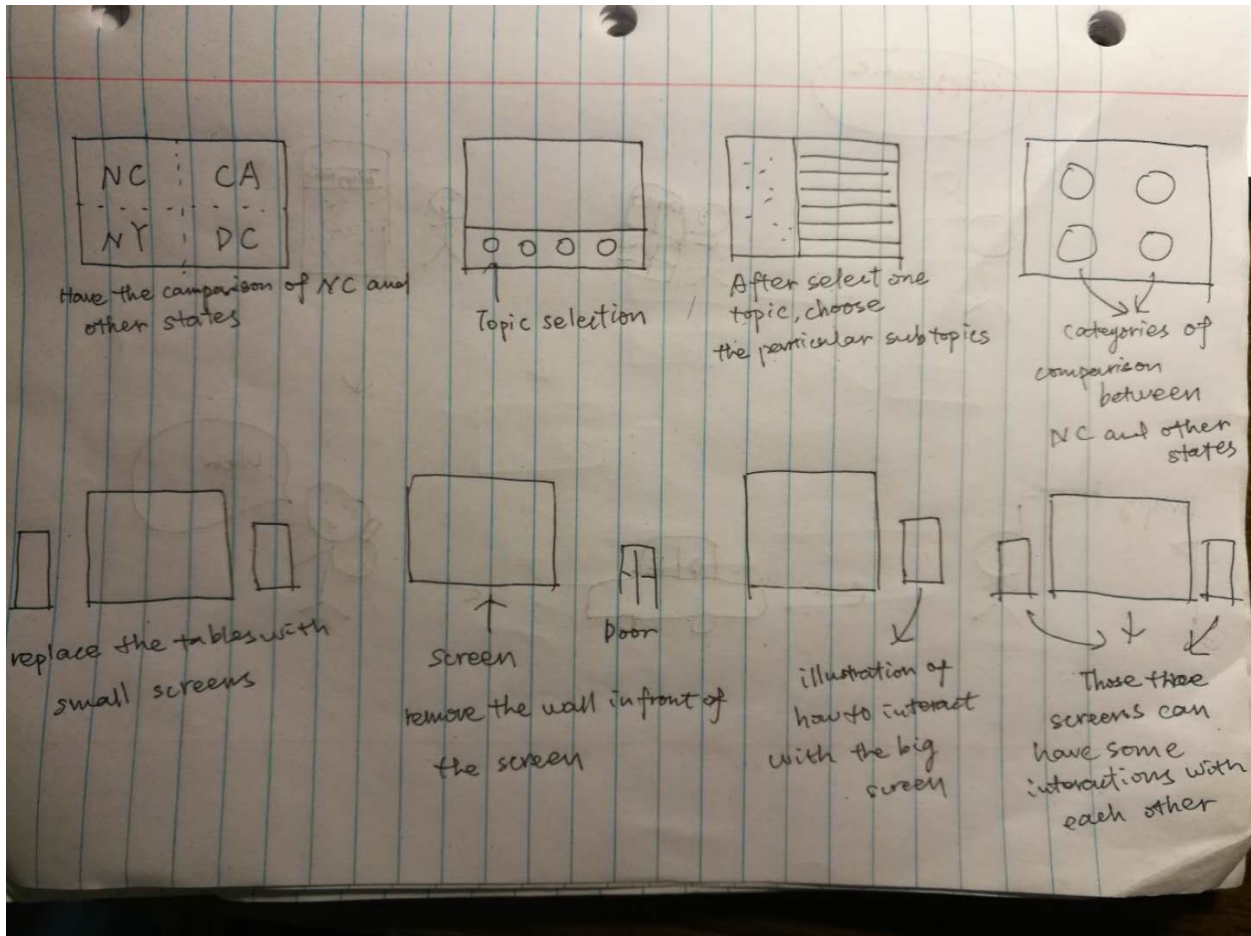 NC CA
NY DC
Have the comparison of NC and
other states
Topic selection
After select one
topic, choose
the particular subtopics
categories of
comparison
between
NC and other
states
replace the tables with
small screens
Screen
remove the wall in front of
the screen
Door
illustration of
how to interact
with the big
screen
Those three
screens can
have some
interactions with
each other
User